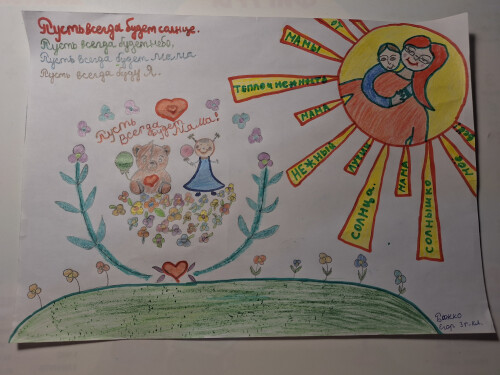 Пусть всегда будет солнце.
Пусть всегда будет небо,
Пусть всегда будет мама
Пусть всегда буду Я.
Пусть
всегда будет Мама!
ОТ
МАМЫ
МАМА
НЕЖНЫЕ
СОЛНЦА.
МАМА
СОЛНЫШКО
Егор